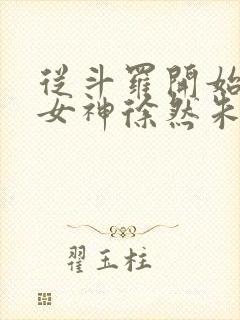 從斗羅開始
女神徐然朱
翟玉柱